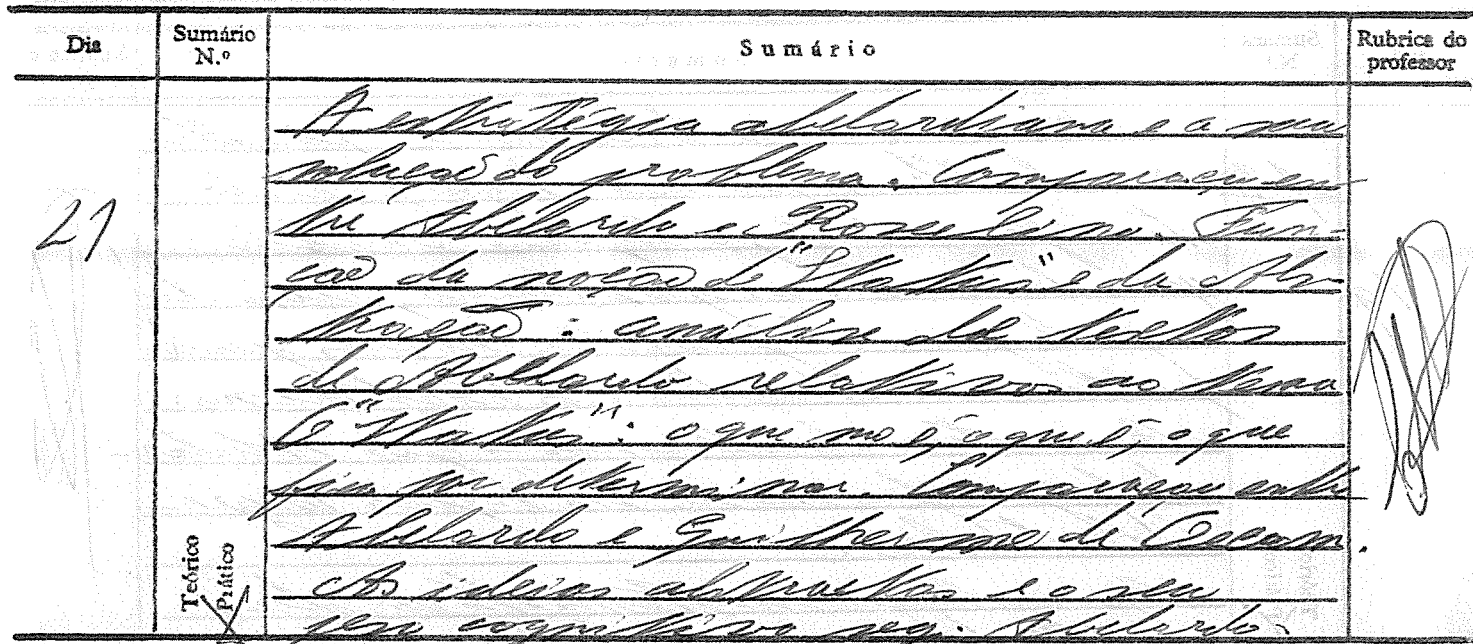 Dia
Sumário N.º
Sumário
Rubrica do professor
21
A estratégia abelardiana e a sua
solução do problema. Comparação en-
tre Abelardo e Roscelino. Fun-
ção da noção de "Status" e da Abs-
tração: análise de textos
de Abelardo relativos ao tema
O "Status": o que não é, o que é, o que
fica por determinar. Comparação entre
Abelardo e Guilherme de Occam.
As ideias abstractas e o seu
peso cognitivo seg. Abelardo.
Teórico
Prático